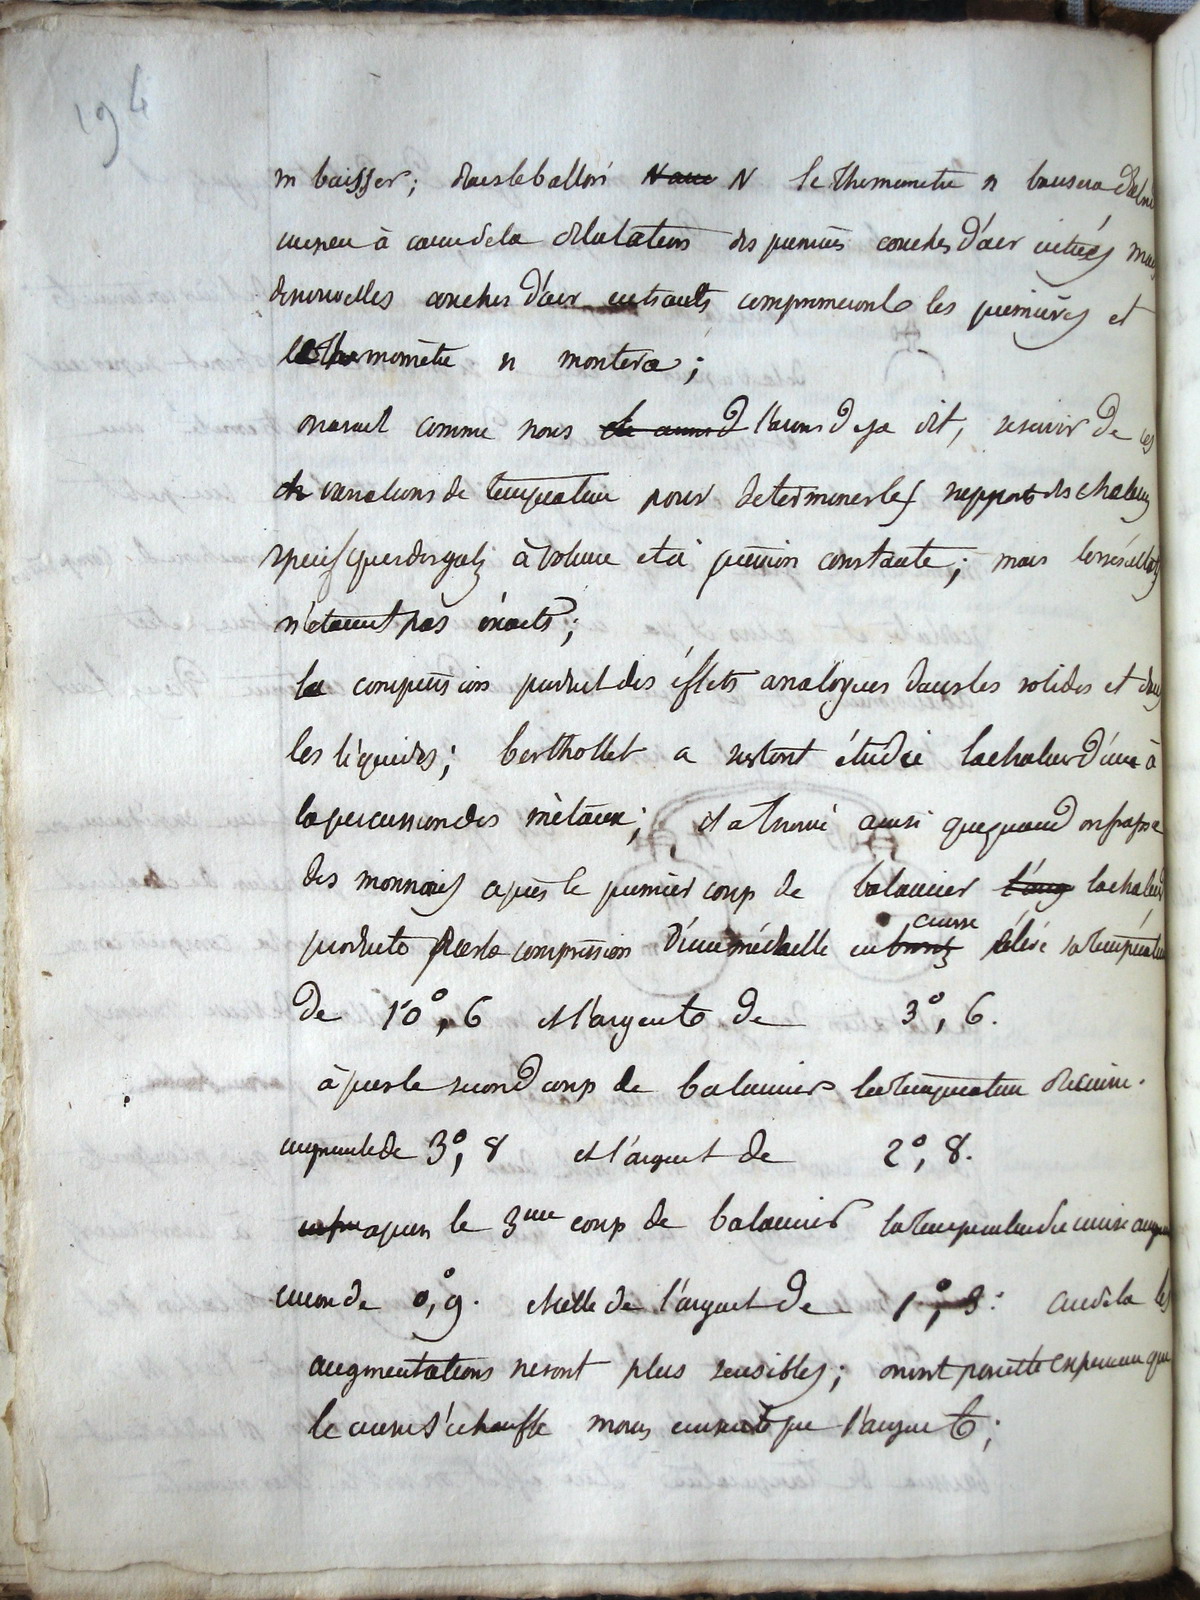 194
m baisser; dans le ballon N le thermometre n baissera d'abord
un peu à cause de la dilatation des premieres couches d'air entrées mais
de nouvelles couches d'air entrants comprimeront les premières et
le thermomètre n montera;
on avait comme nous l'avons deja dit, se servir de ces
variations de temperature pour determiner les rapports des chaleurs
specifiques des gaz à volume et à pression constante; mais les résultats
n'etaient pas éxacts;
la compression produit des éffets analogues dans les solides et dans
les liquides; berthollet a surtout étudié la chaleur d'une à
la percussion des mètaux; il a trouvé ainsi que quand on frappe
des monnaies après le premier coup de balancier la chaleur
produite par la compression d'une médaille en cuivre élève sa température
de 10°, 6 et l'argent de 3°, 6.
après le second coup de balancier la temperature du cuivre
augmente de 3°, 8 et l'argent de 2°, 8.
apres le 3me coup de balancier la temperature du cuivre augmente
encore de 0°, 9. et celle de l'argent de 1°, 3. au dela les
augmentations ne sont plus sensibles; on voit par cette experience que
le cuivre s'echauffe moins ensuite que l'argent;